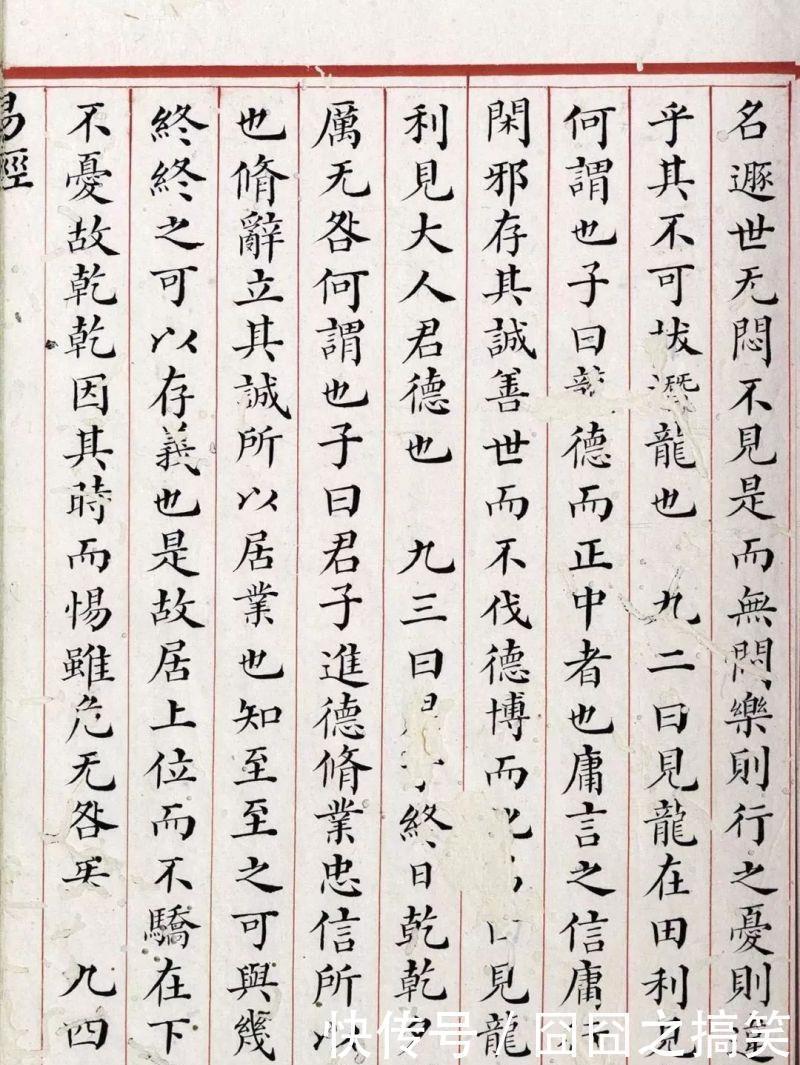 名遯世无悶不見是而無悶樂則行之憂則違
乎其不可拔潛龍也 九二曰見龍在田利見
何謂也子曰德而正中者也庸言之信庸
閑邪存其誠善世而不伐德博而見龍
利見大人君德也 九三曰終日乾乾
厲无咎何謂也子曰君子進德脩業忠信所以
也脩辭立其誠所以居業也知至至之可與幾
終終之可以存義也是故居上位而不驕在下
不憂故乾乾因其時而惕雖危无咎矣 九四
易經
快传号/囧囧之搞笑